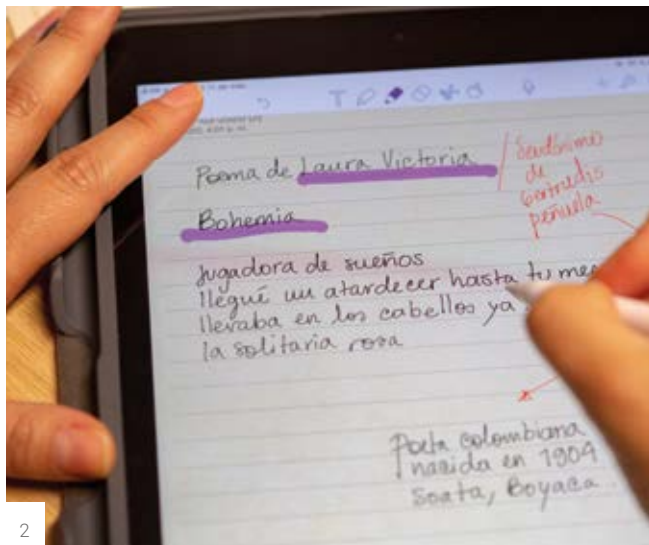 Poema de Laura Victoria
Seudónimo
de
Gertrudis
peñuela
Bohemia
Jugadora de sueños
llegué un atardecer hasta tu
llevaba en los cabellos ya
la solitaria rosa
Poeta colombiana
nacida en 1904
Soata, Boyaca
2